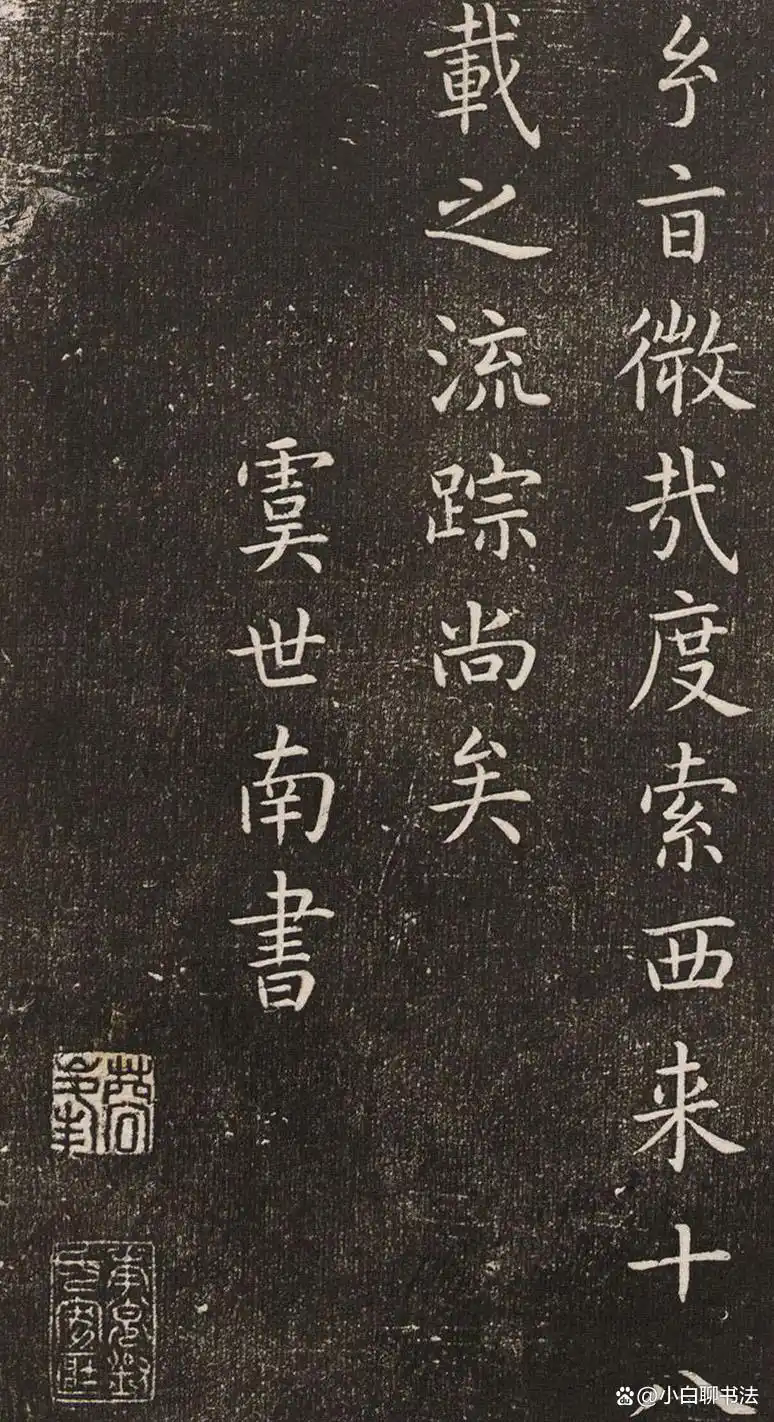 㫖微哉度索西来十八
載之流踪尚矣
虞世南書
@小白聊书法